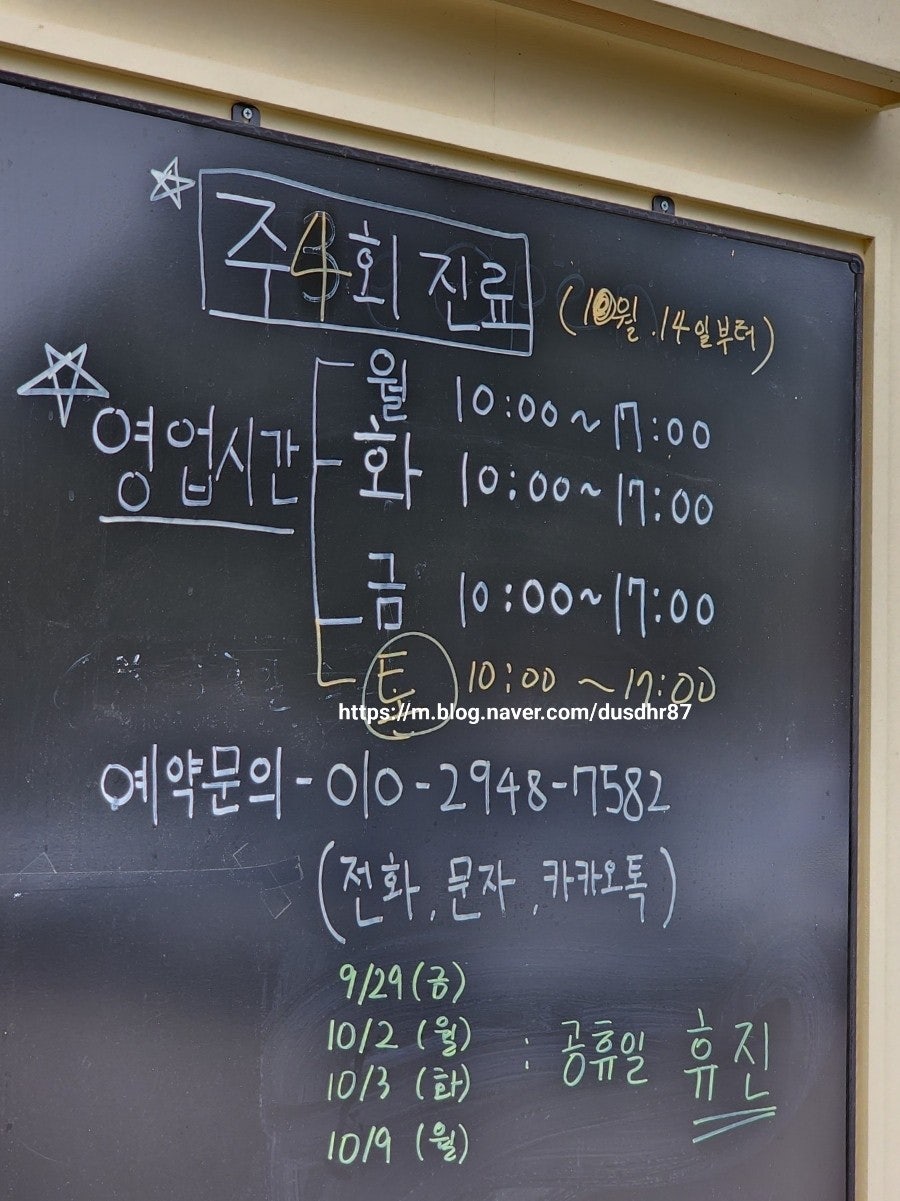 주4회 진료 (10월.14일부터)
영업시간
월 10:00~17:00
화 10:00~17:00
금 10:00~17:00
토 10:00~17:00
https://m.blog.naver.com/dusdhr87
예약문의-010-2948-7582
(전화, 문자, 카카오톡)
9/29(금)
10/2 (월)
10/3 (화)
10/9 (월)
: 공휴일 휴진